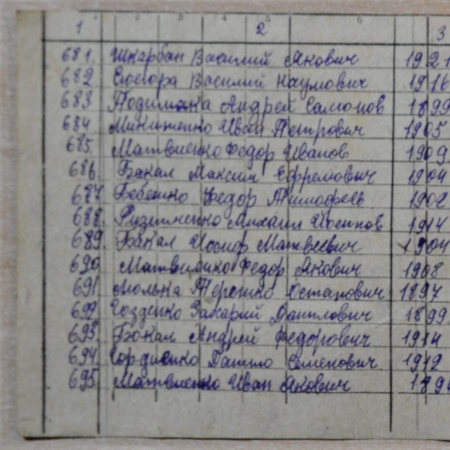 1 2 3
681. Шкарбан Василий Якович 1921
682 Сюсюра Василий Наумович 1916
683 Подимака Андрей Самонов 1899
684 Микитенко Иван Петрович 1905
685 Матвиенко Федор Иванов 1909
686 Бакал Максим Ефремович 1904
687 Бебешко Федор Тимофеев 1902
688. Кузьменко Михаил 1914
689. Бакал Иосип Матвеевич 1904
690. Матвиенко Федор Якович 1908
691. Терешко Остапович 1897
692 Гозденко Захарий Данилович 1899
693. Бакал Андрей Федорович 1914
694. Гордиенко Данило Семенович. 1912
695. Матвиенко Иван Якович